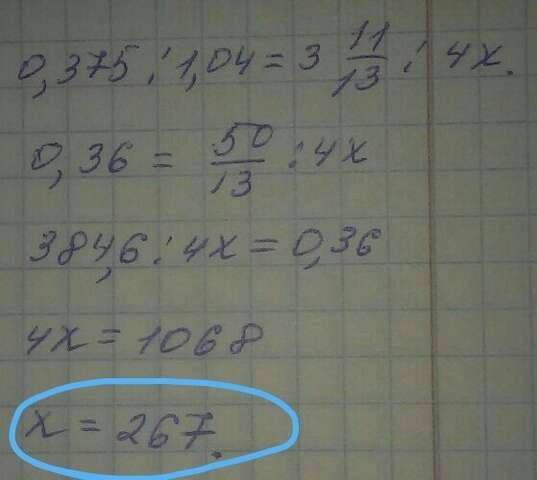 0,375 : 1,04 = 3 11/13 : 4x.
0,36 = 50/13 : 4x
384,6 : 4x = 0,36
4x = 1068
x = 267.